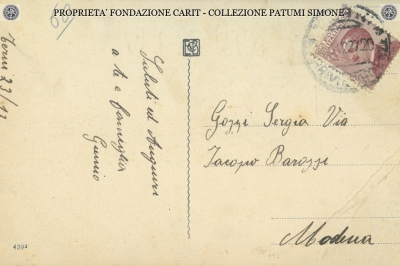 PROPRIETA' FONDAZIONE CARIT - COLLEZIONE PATUMI SIMONE
Terni 23/12
Saluti ed Auguri
a te e famiglia
Gozzi Sergia Via
Iacopo Barozzi
Modena
4392